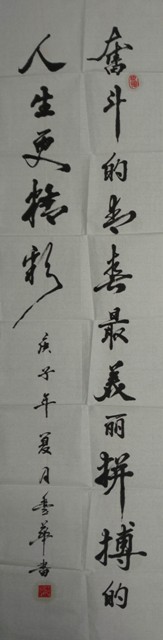 奋斗的青春最美丽拼搏的
人生更精彩
庚子年夏月秀华书